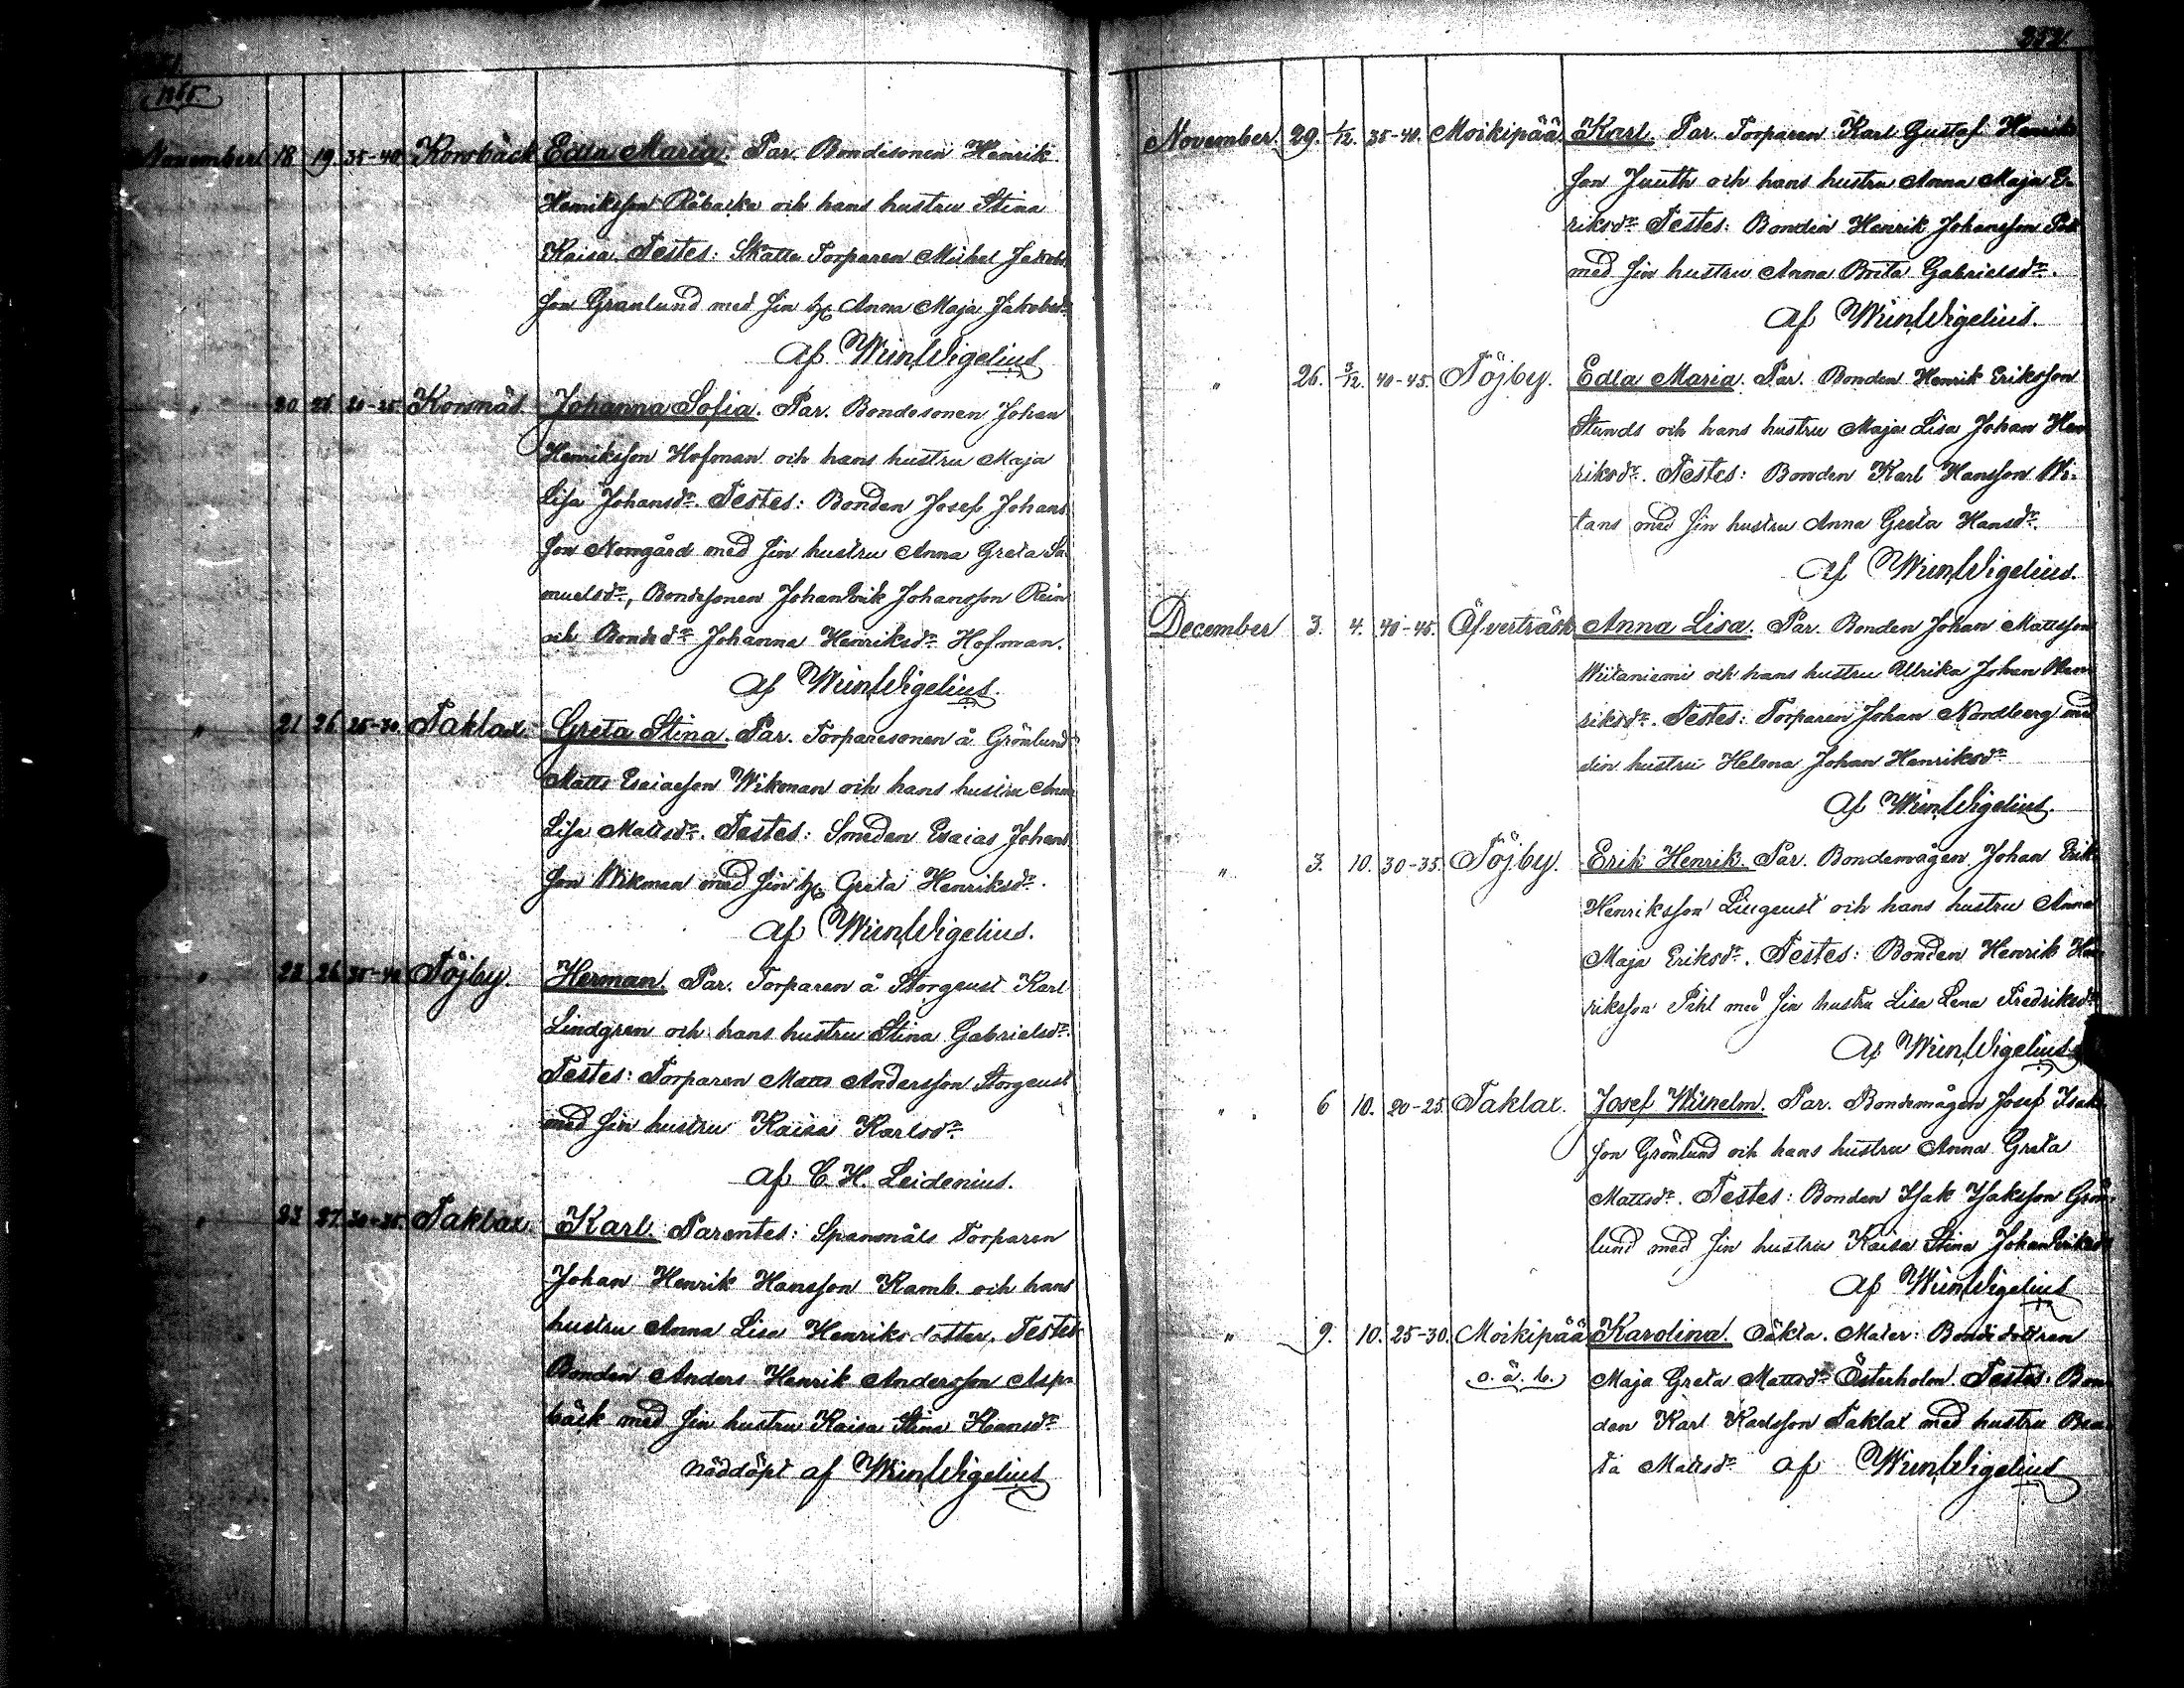 November 18 19. 35-40. Korsbäck Edla Maria. Par. Bondesonen Henrik
Henriksson Råbacka och hans hustru Stina
Kaisa. Testes: Skatte Torparen Michel Jakobs
son Granlund med sin Anna Maja Jakobsdr
af Wigelius
" 20 26 20-25. Korsnäs Johanna Sofia. Par. Bondesonen Johan
Henriksson Hofman och hans hustru Maja
Lisa Johansdr. Testes: Bonden Josef Johans
son Norrgård med sin hustru Anna Greta Sa-
muelsdr, Bondesonen Johan Erik Johansson Rein
och Bondedr Johanna Henriksdr Hofman.
af Wigelius.
" 21 26. 25-30. Taklax Greta Stina. Par. Torparesonen å Grönlund
Matts Esaiasson Wikman och hans hustru Anna
Lisa Mattsdr. Testes: Smeden Esaias Johans
son Wikman med sin Greta Henriksdr.
af Wigelius.
" 22 26 35-40 Töjby. Herman. Par. Torparen å Storgeust Karl
Lindgren och hans hustru Stina Gabrielsdr.
Testes: Torparen Matts Andersson Storgeust
med sin hustru Kaisa Karlsdr.
af C. H. Leidenius.
" 23 27. 30-35. Taklax. Karl. Parentes: Spannmåls Torparen
Johan Henrik Hansson Kamb. och hans
hustru Anna Lisa Henriksdotter. Testes
Bonden Anders Henrik Andersson Asp-
bäck med sin hustru Kaisa Stina Hansdr
nöddöpt af Wigelius
252.
November. 29. 1/12. 35-40. Moikipää. Karl. Par. Torparen Karl Gustaf Henrik
son Juuth och hans hustru Anna Maja E-
riksdr Testes: Bonden Henrik Johansson
med sin hustru Anna Brita Gabrielsdr.
af Wigelius.
" 26. 3/12. 40-45. Töjby. Edla Maria. Par. Bonden Henrik Eriksson
Stunds och hans hustru Maja Lisa Johan Hen
riksdr. Testes: Bonden Karl Hansson Wi-
tans med sin hustru Anna Greta Hansdr.
af Wigelius.
December 3. 4. 40-45. Öfverträsk Anna Lisa. Par. Bonden Johan Mattsson
Wiitaniemi och hans hustru Ulrika Johan Hen
riksdr. Testes: Torparen Johan Nordberg med
sin hustru Helena Johan Henriksdr
af Wigelius.
" 3. 10. 30-35. Töjby. Erik Henrik. Par. Bondemågen Johan Erik
Henriksson Lillgeust och hans hustru Anna
Maja Eriksdr. Testes: Bonden Henrik Hen
riksson Pihl med sin hustru Lisa Lena Fredriksdr
af Wigelius
" 6 10. 20-25. Taklax. Josef Wilhelm. Par. Bondemågen Josef Isaks
son Grönlund och hans hustru Anna Greta
Mattsdr. Testes: Bonden Isak Isaksson Grön-
lund med sin hustru Kaisa Stina Johan Eriksdr
af Wigelius
" 9. 10. 25-30. Moikipää Karolina. Oäkta. Mater: Bondedottren
o. ä. b. Maja Greta Mattsdr Österholm. Testes: Bon-
den Karl Karlsson Taklax med hustru Bea-
ta Mattsdr af Wigelius